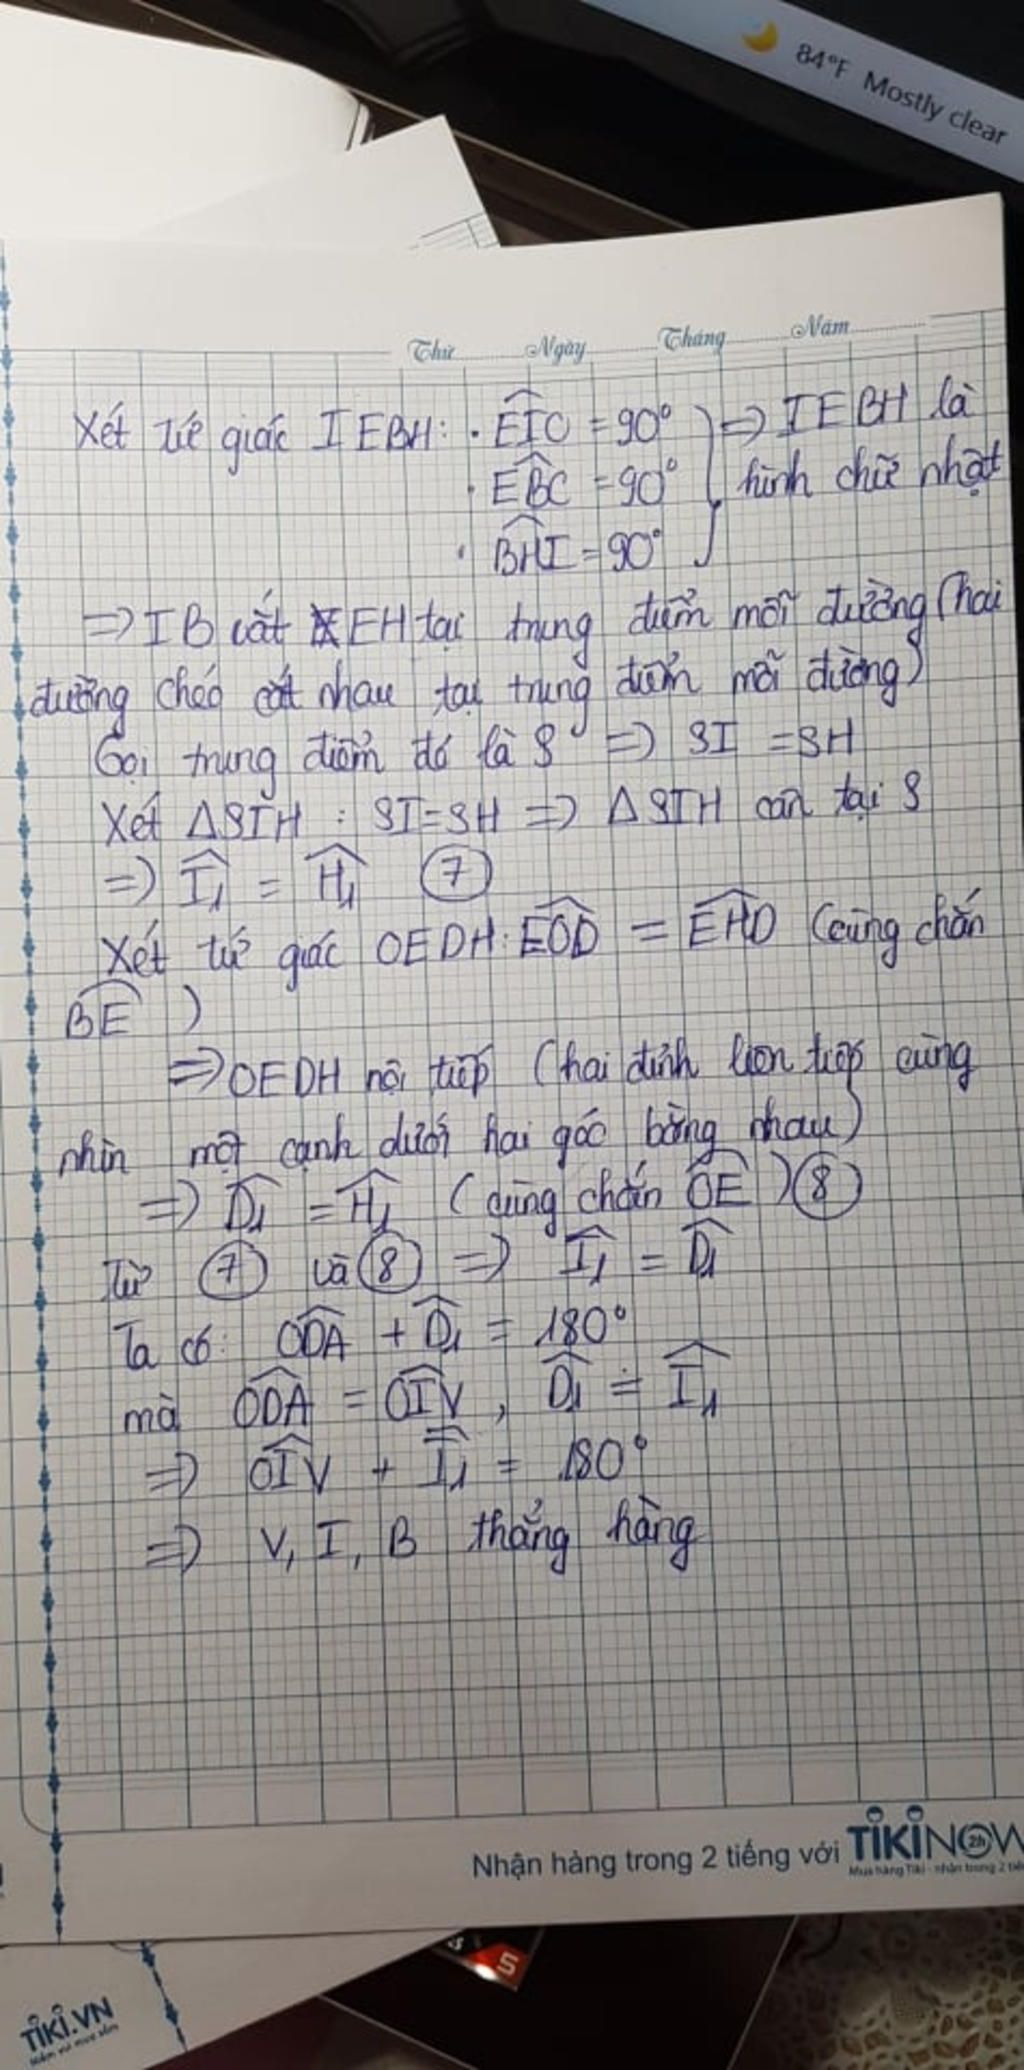 84°F Mostly clear
Thứ Ngày Tháng Năm
Xét tứ giác IEBH: . \widehat{EIC} = 90° } => IEBH là
. \widehat{EBC} = 90° hình chữ nhật
. \widehat{BHI} = 90°
=> IB cắt EH tại trung điểm mỗi đường (hai
đường chéo cắt nhau tại trung điểm mỗi đường)
Gọi trung điểm đó là S => SI = SH
Xét ΔSIH : SI=SH => ΔSIH cân tại S
=> \widehat{I_1} = \widehat{H_1} (7)
Xét tứ giác OEDH: \widehat{EOD} = \widehat{EHD} (cùng chắn
\widehat{BE} )
=> OEDH nội tiếp (hai đỉnh liên tiếp cùng
nhìn một cạnh dưới hai góc bằng nhau)
=> \widehat{D_1} = \widehat{H_1} (cùng chắn \widehat{OE} ) (8)
Từ (7) và (8) => \widehat{I_1} = \widehat{D_1}
Ta có: \widehat{ODA} + \widehat{D_1} = 180°
mà \widehat{ODA} = \widehat{OIV} , \widehat{D_1} = \widehat{I_1}
=> \widehat{OIV} + \widehat{I_1} = 180°
=> V, I, B thẳng hàng
Nhận hàng trong 2 tiếng với TIKINOW 2h
5
TIKI.VN